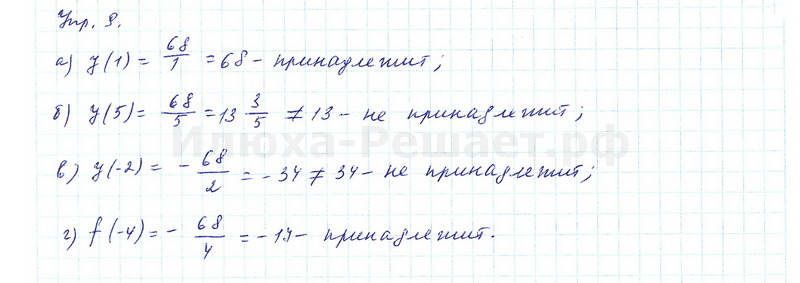 Упр. 9.
а) y(1) = 68/1 = 68 - принадлежит;
б) y(5) = 68/5 = 13 3/5 ≠ 13 - не принадлежит;
Илюха-Решает.рф
в) y(-2) = - 68/2 = -34 ≠ 34 - не принадлежит;
г) f(-4) = - 68/4 = -17 - принадлежит.